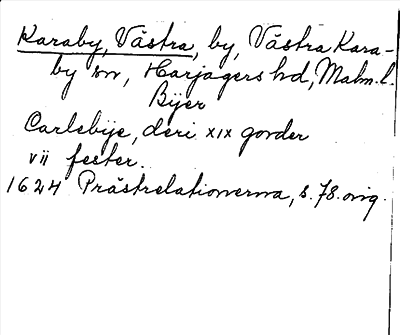 Karaby, Västra, by, Västra Kara-
by sn, Harjagers hd, Malm. l.
Byer
Carlebije, deri xix gorder
vii fester.
1624 Prästrelationerna, s. 78. orig.